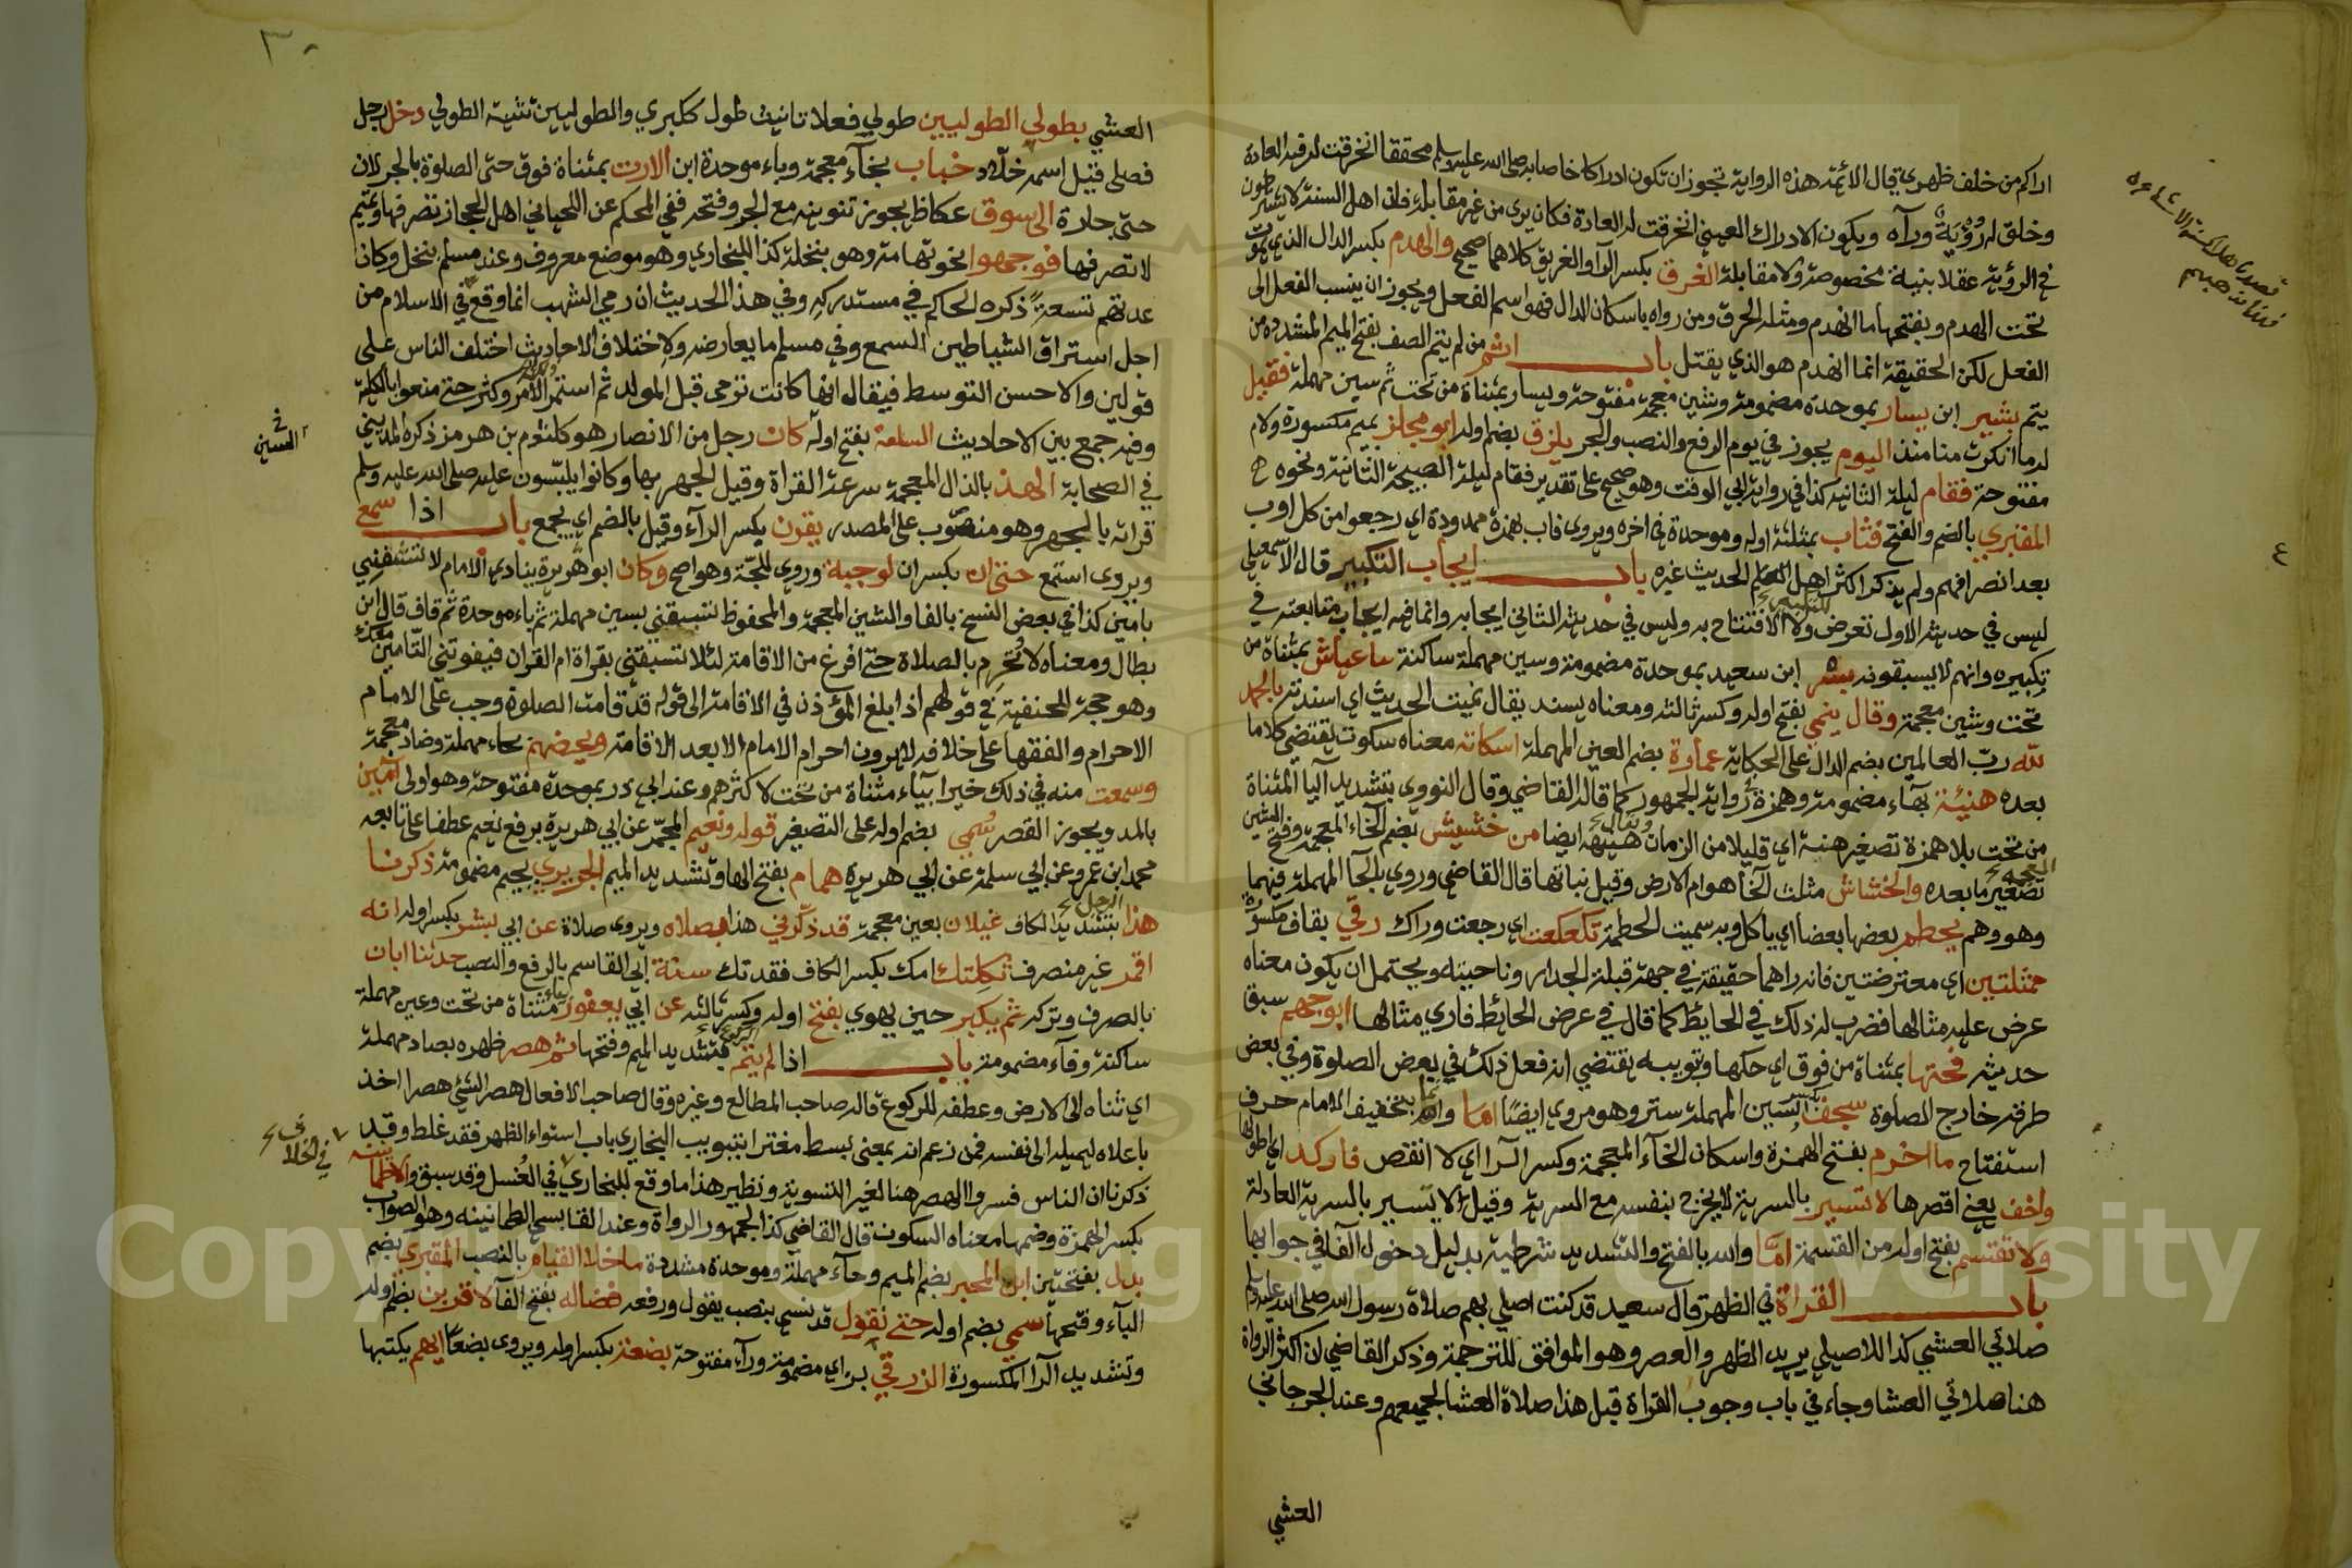 اراكم من خلف ظهري قال الائمة هذه الرواية تجوز ان تكون ادراكا خاصا به صلى الله عليه وسلم محققا انخرقت له فيه العادة
وخلق له رؤية ورآه ويكون الادراك العيني انخرقت له العادة فكان يرى من غير مقابلة فان اهل السنة لا يشترطون
في الرؤية عقلا بنية مخصوصة ولا مقابلة الغرق بكسر الرآ والغريق كلاهما صحيح والهدم بكسر الدال الذي يموت
تحت الهدم وبفتحها ما انهدم ومثله الحرق ومن رواه باسكان الدال فهو اسم الفعل ويجوز ان ينسب الفعل الى
الفعل لكن الحقيقة انما انهدم هو الذي يقتل باب اثم من لم يتم الصف بفتح الميم المشددة من
يتم بشير ابن يسار بموحدة مضمومة وشين معجمة مفتوحة ويسار بمثناة من تحت ثم سين مهملة فقيل
له ما انكرت منا منذ اليوم يجوز في يوم الرفع والنصب والجر يلزق بضم اوله ابو مجلز بميم مكسورة ولام
مفتوحة فقام ليلة الثانية كذا في رواية ابي الوقت وهو صحيح على تقدير فقام ليلة الصبيحة الثانية ونحوه
المقبري بالضم والفتح فثاب بمثلثة اوله وموحدة في اخره ويروى فاب بهمزة ممدودة اي رجعوا من كل اوب
بعد انصرافهم ولم يذكر اكثر اهل العلم الحديث غيره باب ايجاب التكبير قال الاسمعيلي
ليس في حديثه الاول تعرض للتكبير ولا الافتتاح به وليس في حديثه الثاني ايجابه وانما فيه ايجاب متابعته في
تكبيره وانهم لا يسبقونه بسر ابن سعيد بموحدة مضمومة وسين مهملة ساكنة عياش بمثناة من
تحت وشين معجمة وقال ينمي بفتح اوله وكسر ثالثه ومعناه يسند يقال نميت الحديث اي اسندته بالحمد
لله رب العالمين بضم الدال على الحكاية عمارة بضم العين المهملة اسكاته معناه سكوت يقتضي كلاما
بعده هنيئة بهاء مضمومة وهمزة رواية الجمهور كما قاله القاضي وقال النووي بتشديد اليا المثناة
من تحت بلا همزة تصغير هنة اي قليلا من الزمان ويقال هنيهة ايضا من خشيش بضم الخاء المعجمة وفتح الشين
المعجمة تصغير ما بعده والخشاش مثلث الخآ هوام الارض وقيل نباتها قال القاضي وروي بالحآ المهملة فيهما
وهو وهم يحطم بعضها بعضا اي ياكل وبه سميت الحطمة تكعكعت اي رجعت وراك رقي بقاف مكسورة
ممثلتين اي معترضتين فانه راهما حقيقة في جهة قبلة الجدار وناحيته ويحتمل ان يكون معناه
عرض عليه مثالها فضرب له ذلك في الحايط كما قال في عرض الحائط فاري مثالها ابو جهم سبق
حديثه فحتها بمثناة من فوق اي حكها وتبويبه يقتضي انه فعل ذلك في بعض الصلوة وفي بعض
طرقه خارج الصلوة سجف بكسر السين المهملة ستر وهو مروي ايضا اما والله بتخفيف الامام حرف
استفتاح ما اخرم بفتح الهمزة واسكان الخآء المعجمة وكسر الرا اي لا انقص فاركد اي اطولها
واخف يعني اقصرها لا تسير بالسرية لا يخرج بنفسه مع السرية وقيل لا تسير بالسرية العادلة
ولا تقسم بفتح اوله من القسمة اما والله بالفتح والتشديد شرطية بدليل دخول الفآ في جوابها
باب القراة في الظهر قال سعيد قد كنت اصلي بهم صلاة رسول الله صلى الله عليه وسلم
صلاتي العشي كذا للاصيلي يريد الظهر والعصر وهو الموافق للترجمة وذكر القاضي ان اكثر الرواة
هنا صلاتي العشا وجاء في باب وجوب القراة قبل هذا صلاة العشا لجميعهم وعند الجرجاني
العشي
٣٠
العشي بطولي الطوليين طولي فعلا تانيث طول ككبري والطوليين تثنية الطولي دخل رجل
فصلى قيل اسمه خلاد خباب بخآء معجمة وباء موحدة ابن الارت بمثناة فوق حتى الصلوة بالجر لان
حتى جارة الى سوق عكاظ يجوز تنوينه مع الجر وفتحه ففي المحكم عن اللحياني اهل الحجاز تصرفها وتميم
لا تصرفها فوجهوا نحو تهامة وهو بنخلة كذا للبخاري وهو موضع معروف وعند مسلم بنخل وكان
عدتهم تسعة ذكره الحاكم في مستدركه وفي هذا الحديث ان رمي الشهب انما وقع في الاسلام من
اجل استراق الشياطين السمع وفي مسلم ما يعارضه ولاختلاف الاحاديث اختلف الناس على
قولين والاحسن التوسط فيقال انها كانت ترمى قبل المولد ثم استمر الامر وكثر حتى منعوا بالكلية
وفيه جمع بين الاحاديث السلعة بفتح اوله كان رجل من الانصار هو كلثوم بن هرمز ذكره المديني
في الصحابة الهذ بالذال المعجمة سرعة القراة وقيل الجهر بها وكانوا يلبسون عليه صلى الله عليه وسلم
قراته بالجهر وهو منصوب على المصدر يقرن بكسر الرآء وقيل بالضم اي يجمع باب اذا سمع
ويروى استمع حتى ان بكسر ان لوجبة وروي للجة وهو اصح وكان ابو هريرة ينادي الامام لا تشفني
بامين كذا في بعض النسخ بالفا والشين المعجمة والمحفوظ تسبقني بسين مهملة ثم باء موحدة ثم قاف قال ابن
بطال ومعناه لا تحرم بالصلاة حتى افرغ من الاقامة لئلا تسبقني بقراة ام القران فيفوتني التامين معك
وهو حجة للحنفية في قولهم اذا بلغ المؤذن في الاقامة الى قوله قد قامت الصلوة وجب على الامام
الاحرام والفقها على خلافه لا يرون احرام الامام الا بعد الاقامة ويحضهم بحاء مهملة وضاد معجمة
وسمعت منه في ذلك خيرا بيآء مثناة من تحت لاكثرهم وعند ابي ذر بموحدة مفتوحة وهو اولى آمين
بالمد ويجوز القصر سمي بضم اوله على التصغير قوله ونعيم المجمر عن ابي هريرة برفع نعيم عطفا على تابعه
محمد ابن عمرو عن ابي سلمة عن ابي هريرة همام بفتح الها وتشديد الميم الجريري بجيم مضمومة ذكرنا
هذا الرجل بتشديد الكاف غيلان بغين معجمة قد ذكرني هذا بصلاه ويروى صلاة عن ابي بشر بكسر اوله انه
احمق غير منصرف ثكلتك امك بكسر الكاف فقدتك سنة ابي القاسم بالرفع والنصب حدثنا ابان
بالصرف وتركه ثم يكبر حين يهوي بفتح اوله وكسر ثالثه عن ابي يعفور بياء مثناة من تحت وعين مهملة
ساكنة وفآء مضمومة باب اذا لم يتم الركوع بتشديد الميم وفتحها ثم هصر ظهره بصاد مهملة
اي ثناه الى الارض وعطفه للركوع قاله صاحب المطالع وغيره وقال صاحب الافعال هصر الشيء هصرا اخذ
باعلاه ليميله الى نفسه فمن زعم انه بمعنى بسط مغترا بتبويب البخاري باب استواء الظهر فقد غلط وقد
ذكرنا ان الناس فسروا الهصر هنا لغير التسوية ونظير هذا ما وقع للبخاري في الغسل وقد سبق والاطمانينة
بكسر الهمزة وضمها معناه السكون قال القاضي كذا لجمهور الرواة وعند القابسي الطمانينه وهو الصواب
بدل بفتحتين ابن المحبر بضم الميم وحآء مهملة وموحدة مشددة ما خلا القيام بالنصب المقبري بضم
البآء وفتحها سمي بضم اوله حتى نقول قد نسي بنصب يقول ورفعه فضاله بفتح الفآ لاقربن بضم اوله
وتشديد الرآ المكسورة الزرقي بزاي مضمومة ورآء مفتوحة بضعة بكسر اوله ويروى بضعا ايهم يكتبها